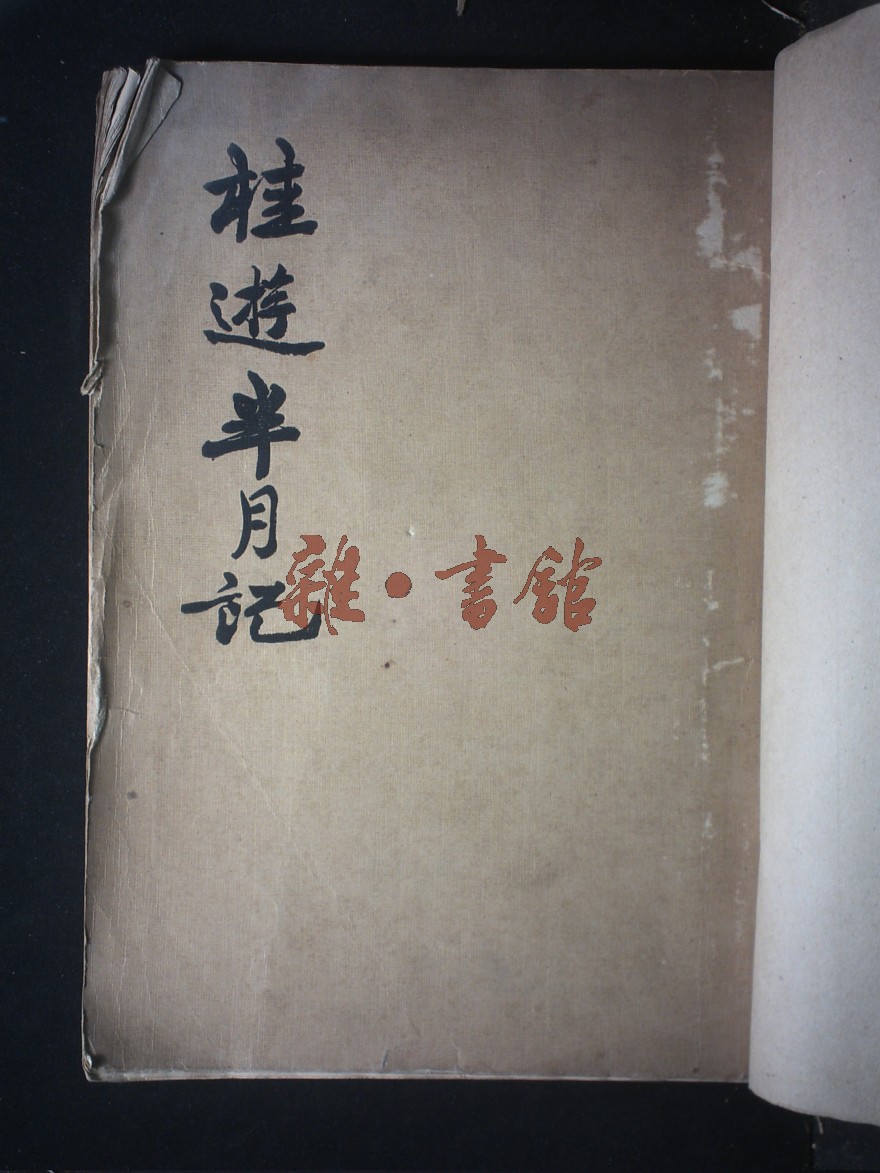 桂遊半月記
雜·書館